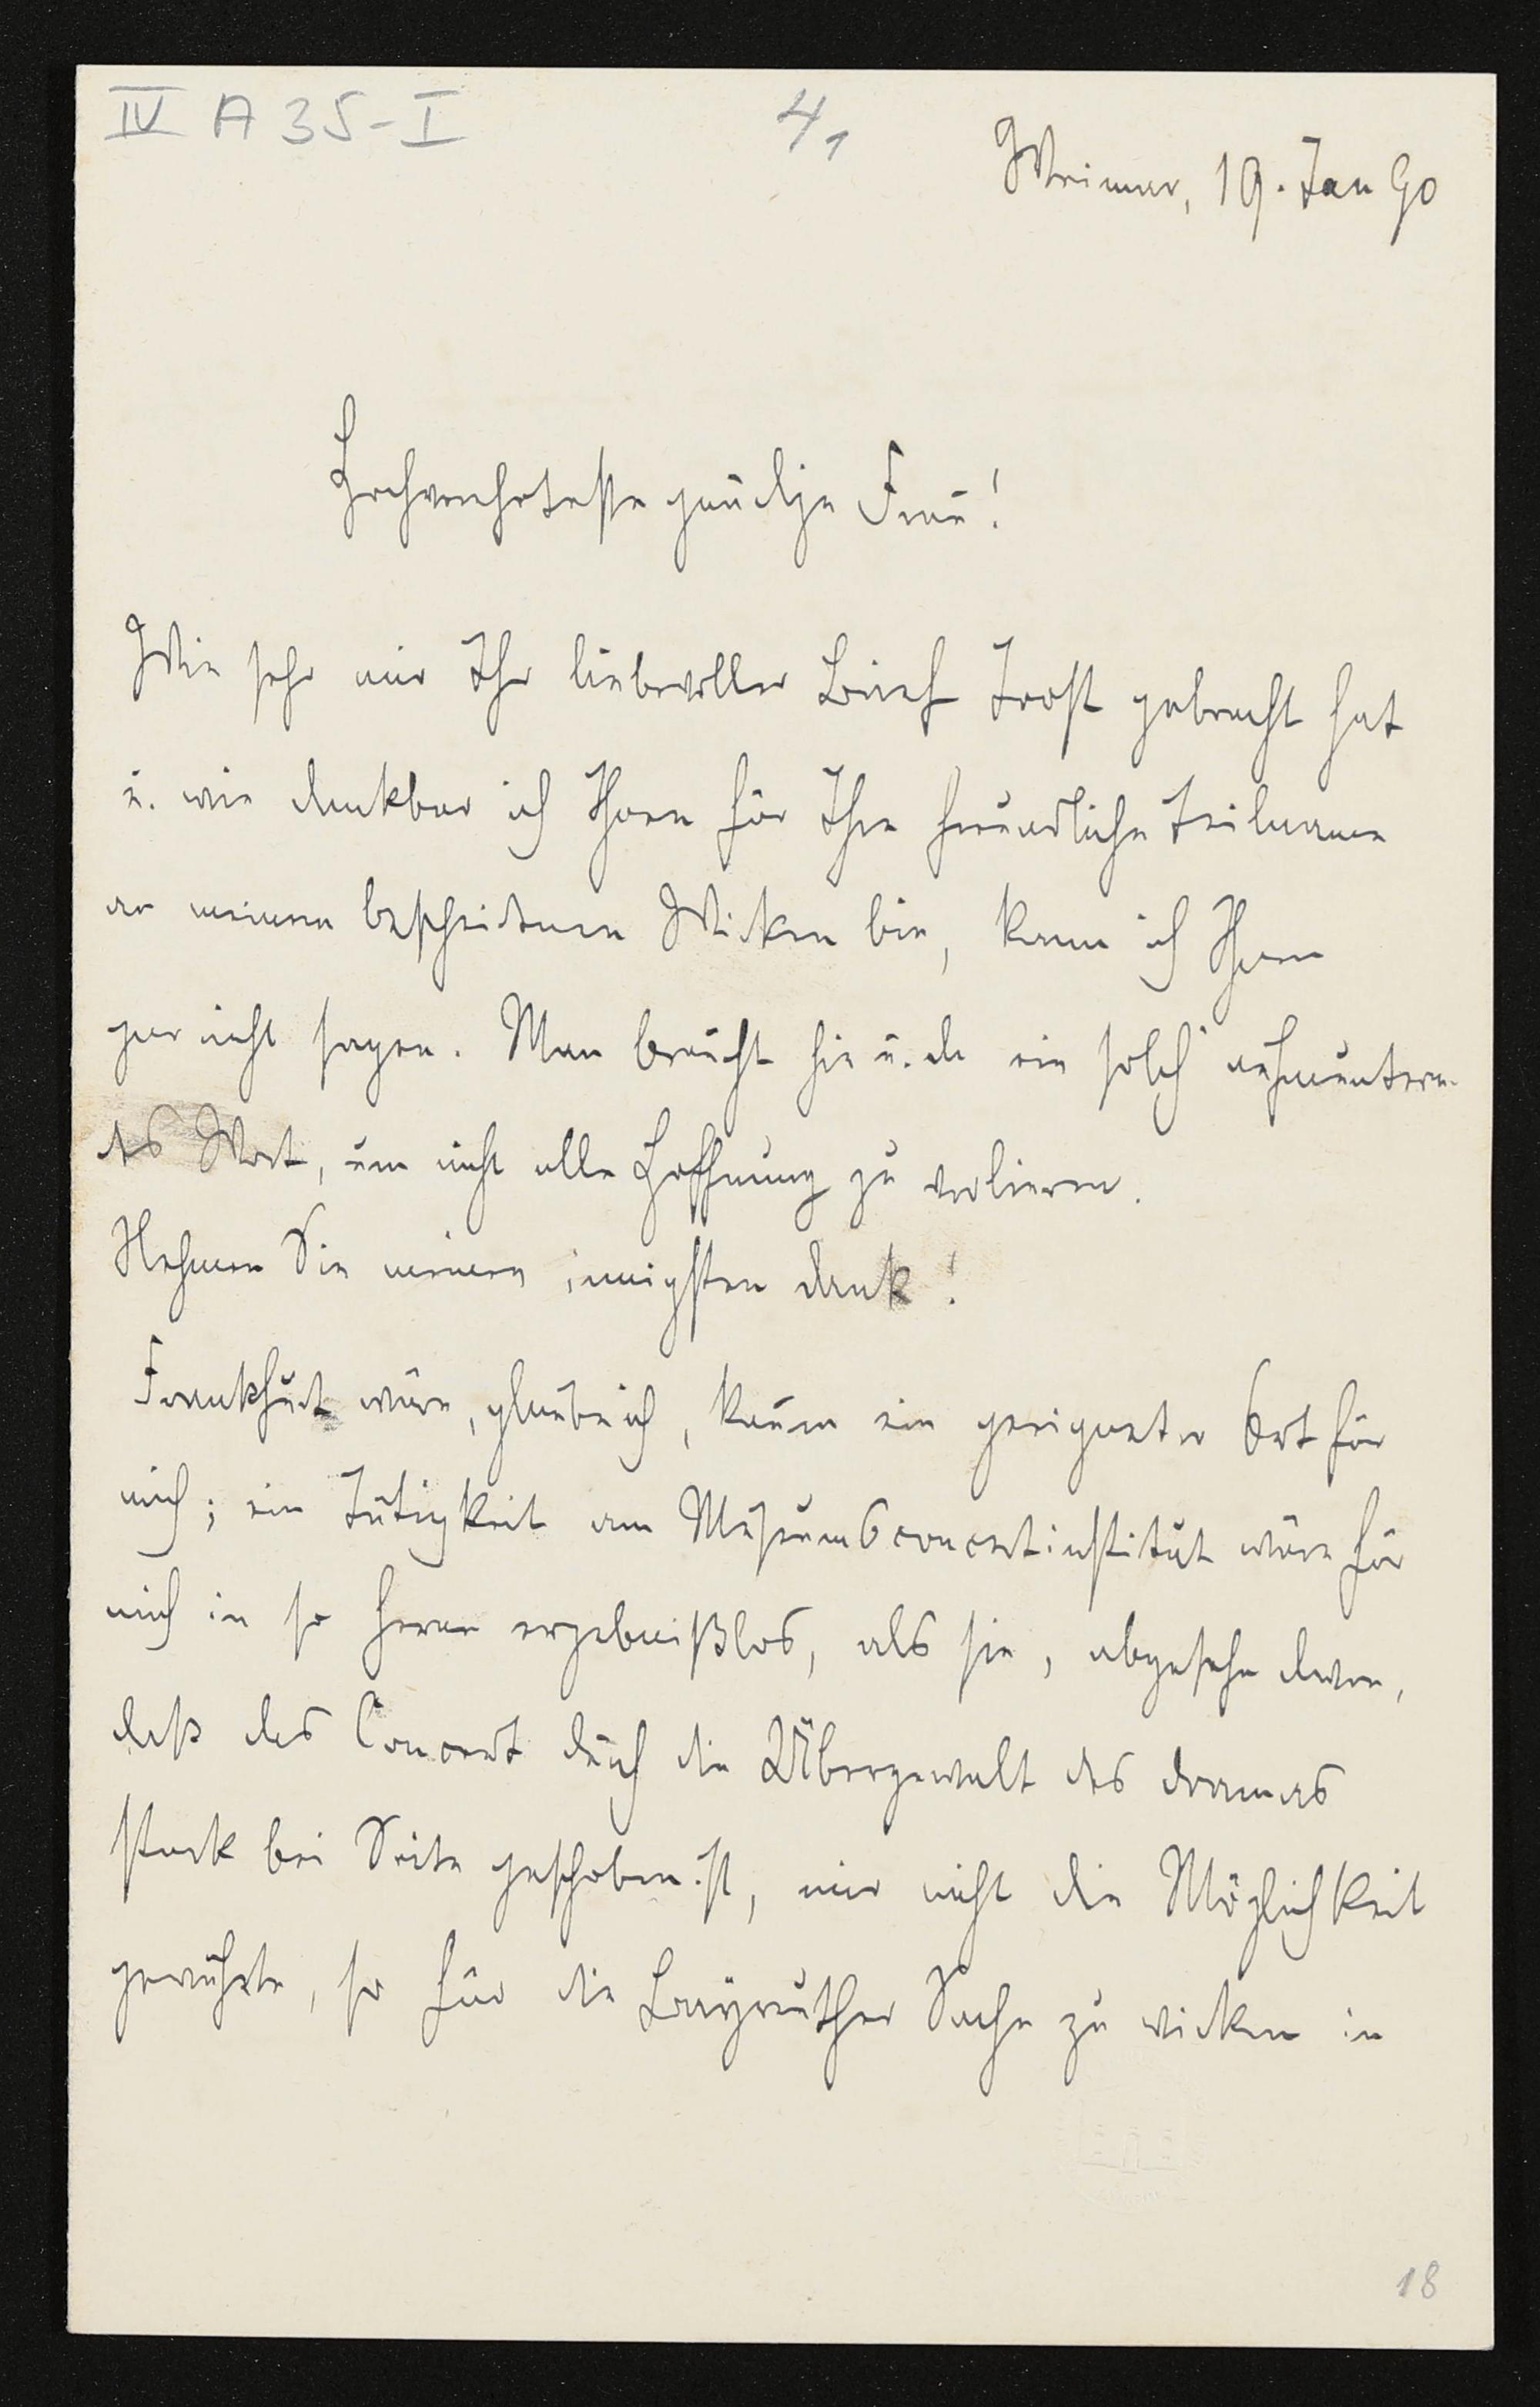 IV A 35-I
4,
Weimar, 19. Jan 90
Hochverehrteste gnädige Frau!
Wie sehr mir Ihr liebevoller Brief Trost gebracht hat
u. wie dankbar ich Ihnen für Ihre freundliche Teilname
an meinem bescheidenen Wirken bin, kann ich Ihnen
gar nicht sagen. Man braucht hie u. da ein solch' aufmuntern-
des Wort, um nicht alle Hoffnung zu verlieren.
Nehmen Sie meinen innigsten Dank!
Frankfurt wäre, glaube ich, kaum ein geeigneter Ort für
mich; eine Tätigkeit am Museumsconcertinstitut wäre für
mich in so ferne ergebnißlos, als sie, abgesehen davon,
daß das Concert durch die Übergewalt des Dramas
stark bei Seite geschoben ist, mir nicht die Möglichkeit
gewährte, so für die Bayreuther Sache zu wirken in
18